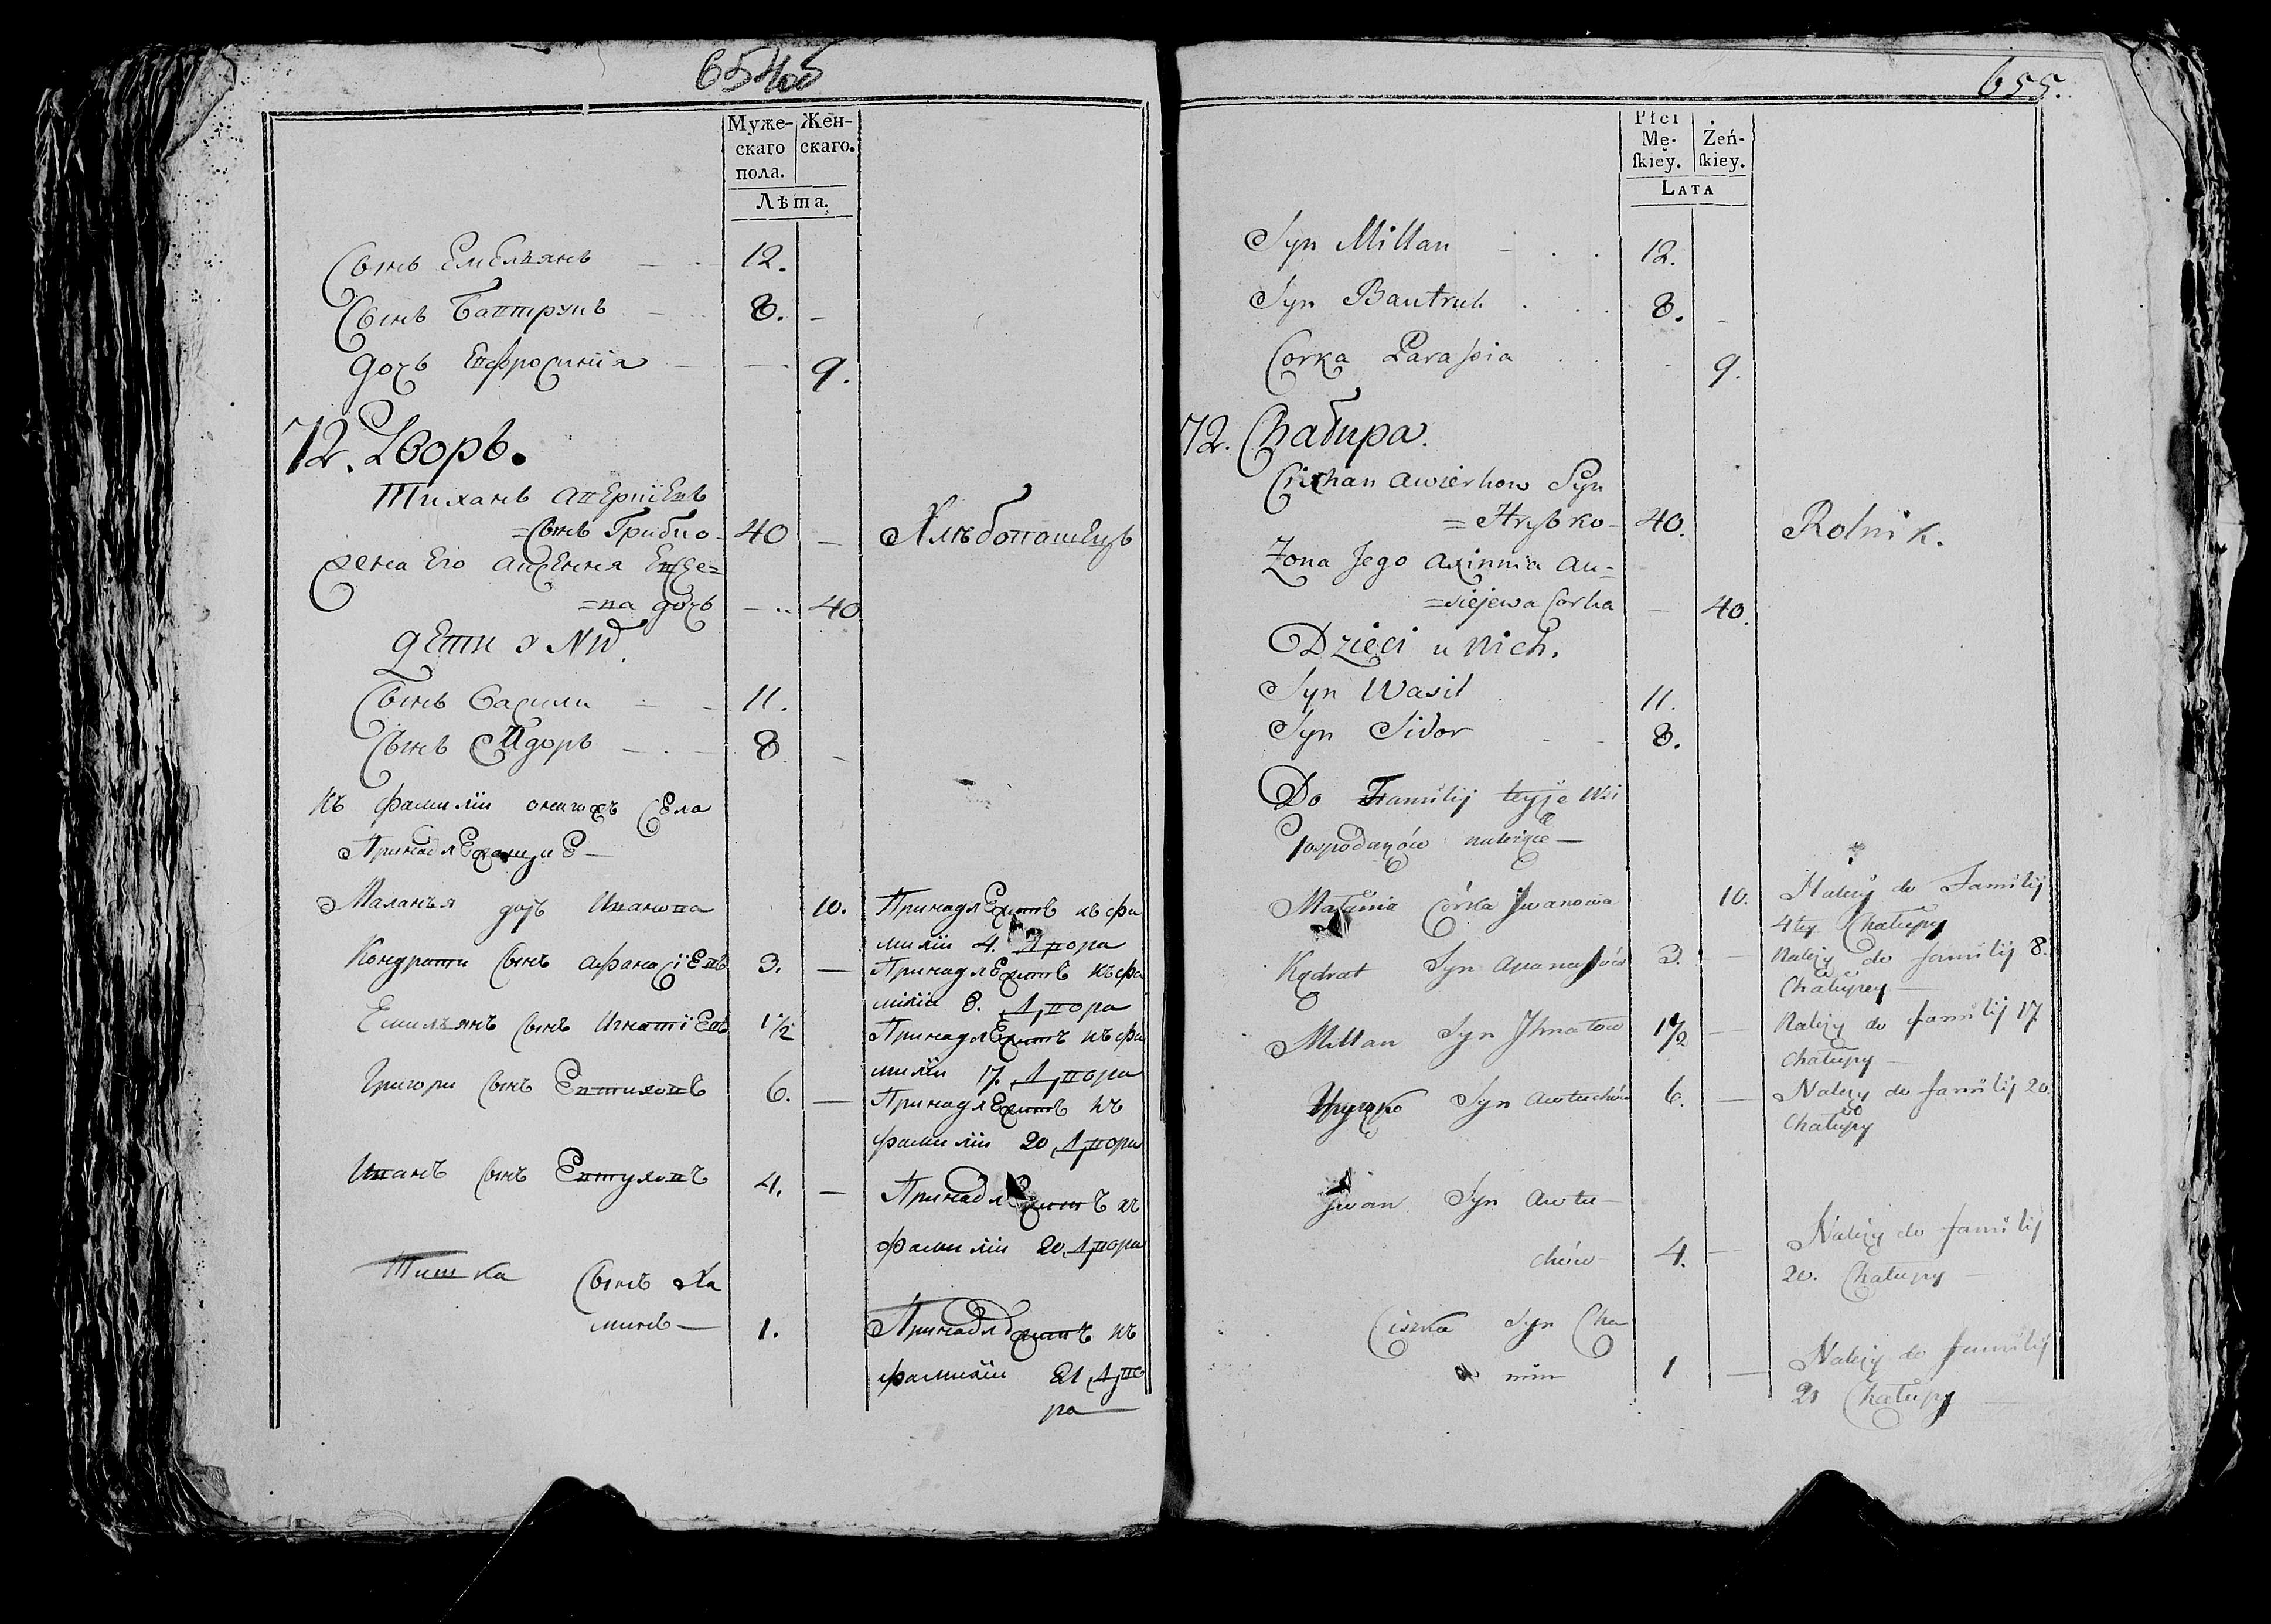 654об
Муже- Жен-
скаго скаго.
пола.
Лѣта.
Сынъ Емельянъ 12.
Сынъ Бавтрукъ 8. -
дочь Евфросинія 9.
72. Дворъ.
Тиханъ Аверкіевъ
=Сынъ Грибко 40 - Хлѣбопашецъ
Жена Его Аксенія Евсе=
=ва дочь 40
дѣти у Них
Сынъ Васили 11.
Сынъ Сидоръ 8
Къ фамиліи оныхъ Села
Принадлежащие
Маланья дочь Иванова 10. Принадлежитъ къ фа
миліи 4. Двора
Кондрати Сынъ Афанасіевъ 3. - Принадлежитъ къ фа
миліи 8. Двора
Емильянъ Сынъ Игнатіевъ 1 1/2 Принадлежитъ къ фа
миліи 17. Двора
Григори Сынъ Евтиховъ 6. - Принадлежитъ къ
фамиліи 20 Двора
Иванъ Сынъ Евтуховъ 4. - Принадлежитъ къ
фамиліи 20 Двора
Тишка Сынъ Ха
минъ - 1. Принадлежитъ къ
фамиліи 21 Дво
ра
655.
Płci
Mę- Żeń-
skiey. skiey.
LATA
Syn Millan 12.
Syn Bautruk 8. -
Corka Parassia 9.
72. Chałupa.
Cichan Awierkow Syn
=Hrybko- 40. Rolnik.
Zona Jego Axinnia Au=
=siejewa Corka - 40.
Dzieci u nich.
Syn Wasil 11.
Syn Sidor 8.
Do Familij teyże wsi
Gospodarzów należące —
Małania Córka Jwanowa 10. Należy do Familij
4tey Chałupy
Kądrat Syn Apanasów 3. - Należy do familij 8.
Chałupy —
Millan Syn Jhnatow 1 1/2 - Należy do familij 17
Chałupy —
Syn Awtuchów 6. - Należy do familij 20.
Chałupy
Jwan Syn Awtu-
chów 4. - Należy do familij
20. Chałupy —
Ciszka Syn Cha
min 1 - Należy do familij
21 Chałupy —